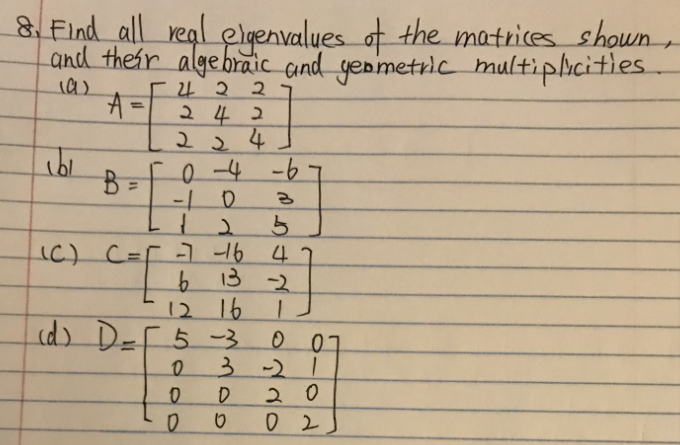 8. Find all real eigenvalues of the matrices shown,
and their algebraic and geometric multiplicities.
(a) A = [ 4 2 2
2 4 2
2 2 4 ]
(b) B = [ 0 -4 -6
-1 0 3
1 2 5 ]
(c) C = [ -7 -16 4
6 13 -2
12 16 1 ]
(d) D = [ 5 -3 0 0
0 3 -2 1
0 0 2 0
0 0 0 2 ]